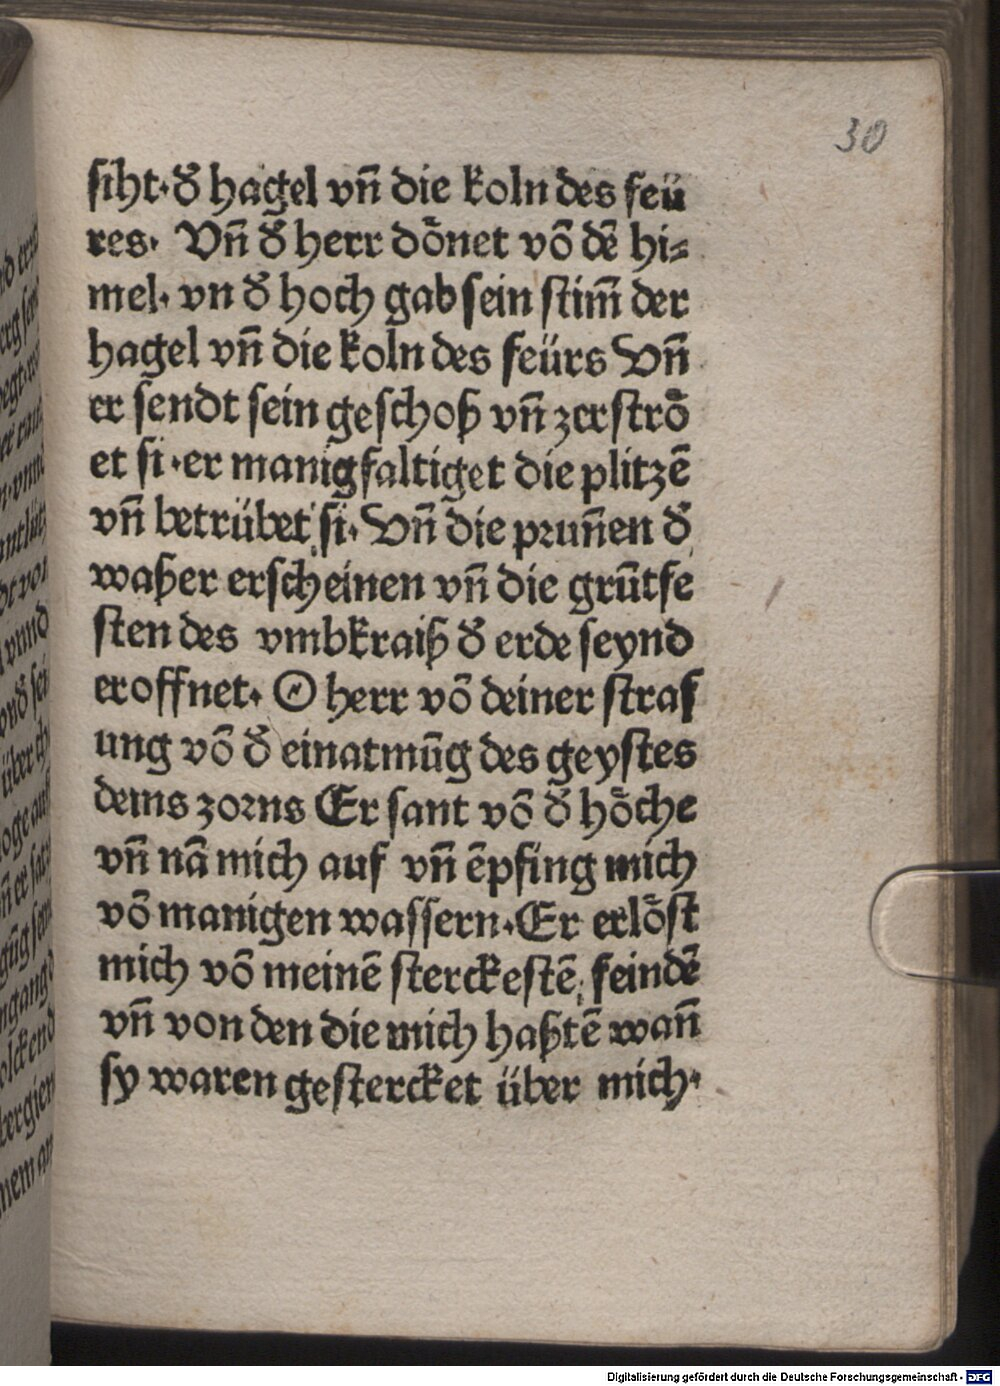 30
siht· d᷑ hagel vn̄ die koln des feü
res· Vn̄ d᷑ herr dȫnet vō dē hi⸗
mel· vn d᷑ hoch gab sein stim̄ der
hagel vn̄ die koln des feürs Vn̄
er sendt sein geschoß vn̄ zerströ
et si·er manigfaltiget die plitzē
vn̄ betrübet si· Vn̄ die prun̄en d᷑
waßer erscheinen vn̄ die grūtfe
sten des vmbkraiß d᷑ erde seynd
eroffnet· O herr vō deiner straf
ung vō d᷑ einatmūg des geystes
deins zorns Er sant vō d᷑ höche
vn̄ nā mich auf vn̄ ēpfing mich
vō manigen wassern·Er erlöst
mich vō meinē sterckestē feindē
vn̄ von den die mich haßtē wan̄
sy waren gestercket über mich·
Digitalisierung gefördert durch die Deutsche Forschungsgemeinschaft - DFG